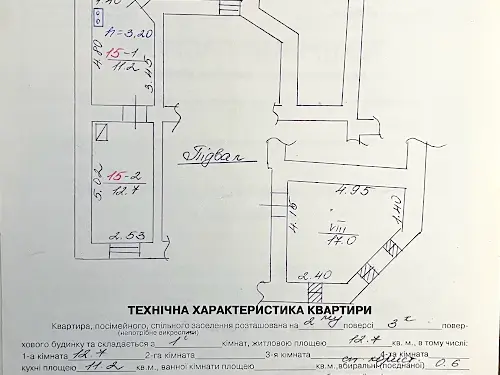 h=3,20
4.80
15-1
11.2
3.45
Підвал
15-2
12.7
5.02
2.53
4.95
4.15
1.40
VIII
17.0
2.40
ТЕХНІЧНА ХАРАКТЕРИСТИКА КВАРТИРИ
Квартира, посімейного, спільного заселення розташована на 2 му поверсі 3х повер-
(непотрібне викреслити)
хового будинку та складається з 1єї кімнат, житловою площею 12.7 кв. м, в тому числі:
1-а кімната 12.7 2-га кімната 3-я кімната 4-та кімната
кухні площею 11.2 кв.м., ванної кімнати площею кв.м.,вбиральні (поєднаної) 0.6